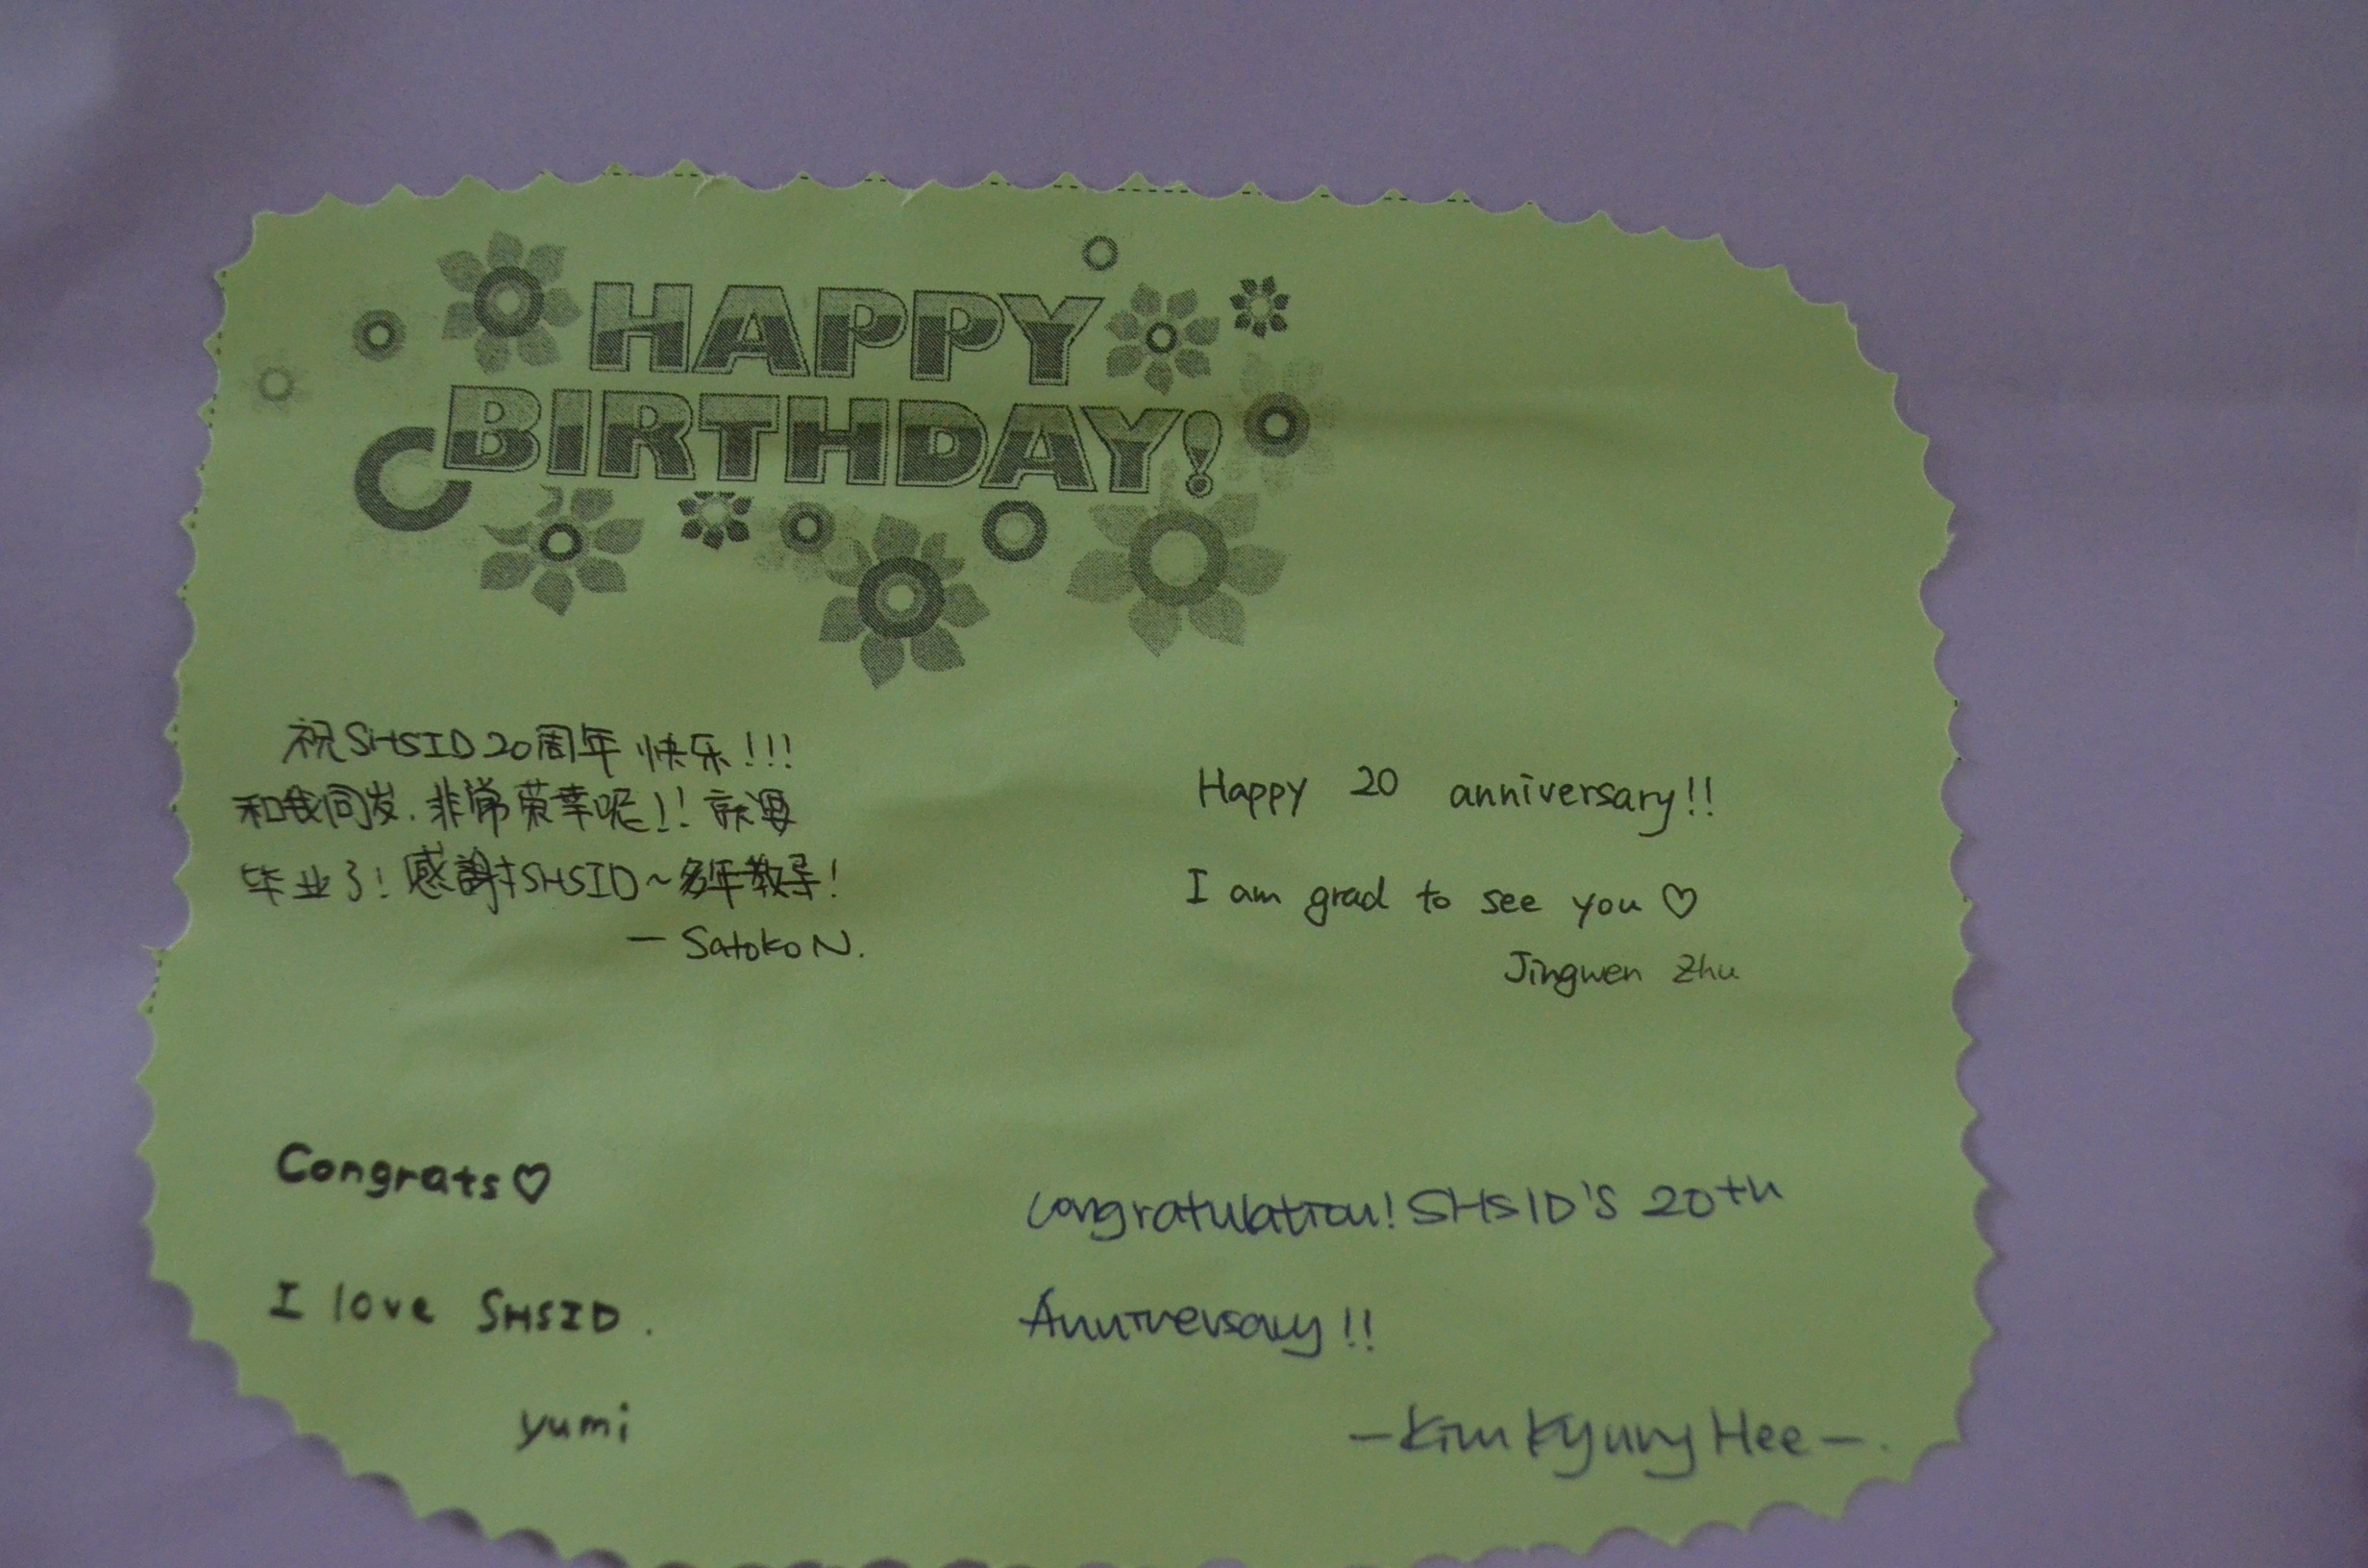 HAPPY
BIRTHDAY!
祝SHSID20周年快乐!!!
和我同岁.非常荣幸呢!! 就要
毕业了!感謝SHSID~多年教导!
— Satoko N.
Happy 20 anniversary!!
I am grad to see you ♡
Jingwen Zhu
Congrats♡
I love SHSID.
yumi
Congratulation! SHSID'S 20th
Anniversary!!
—Kim Kyung Hee—.